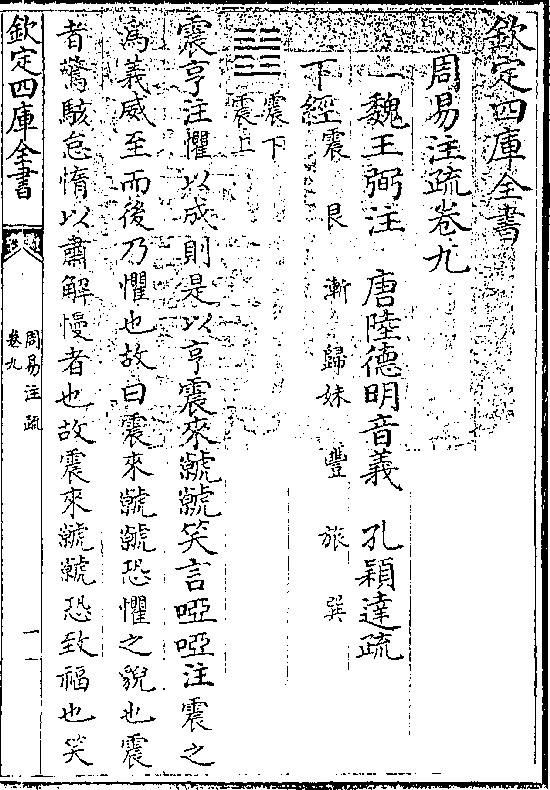 欽定四庫全書
周易注疏卷九
一魏王弼注　唐陸德明音義　孔穎達疏
下經震　艮　漸　歸妹　豐　旅　巽
䷲震下震上
震亨注懼以成則是以亨震來虩虩笑言啞啞注震之
為義威至而後乃懼也故曰震來虩虩恐懼之貌也震
者驚駭怠惰以肅解慢者也故震來虩虩恐致福也笑
欽定四庫全書
周易注疏
卷九
一